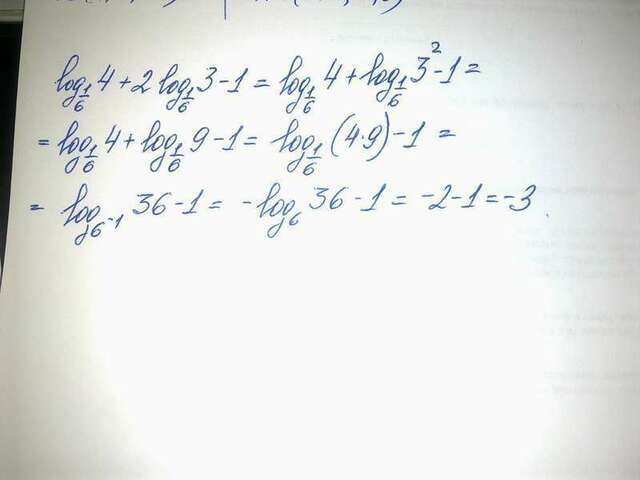 log_{1/6} 4 + 2 log_{1/6} 3 - 1 = log_{1/6} 4 + log_{1/6} 3^2 - 1 =
= log_{1/6} 4 + log_{1/6} 9 - 1 = log_{1/6} (4·9) - 1 =
= log_{6^{-1}} 36 - 1 = -log_6 36 - 1 = -2 - 1 = -3.